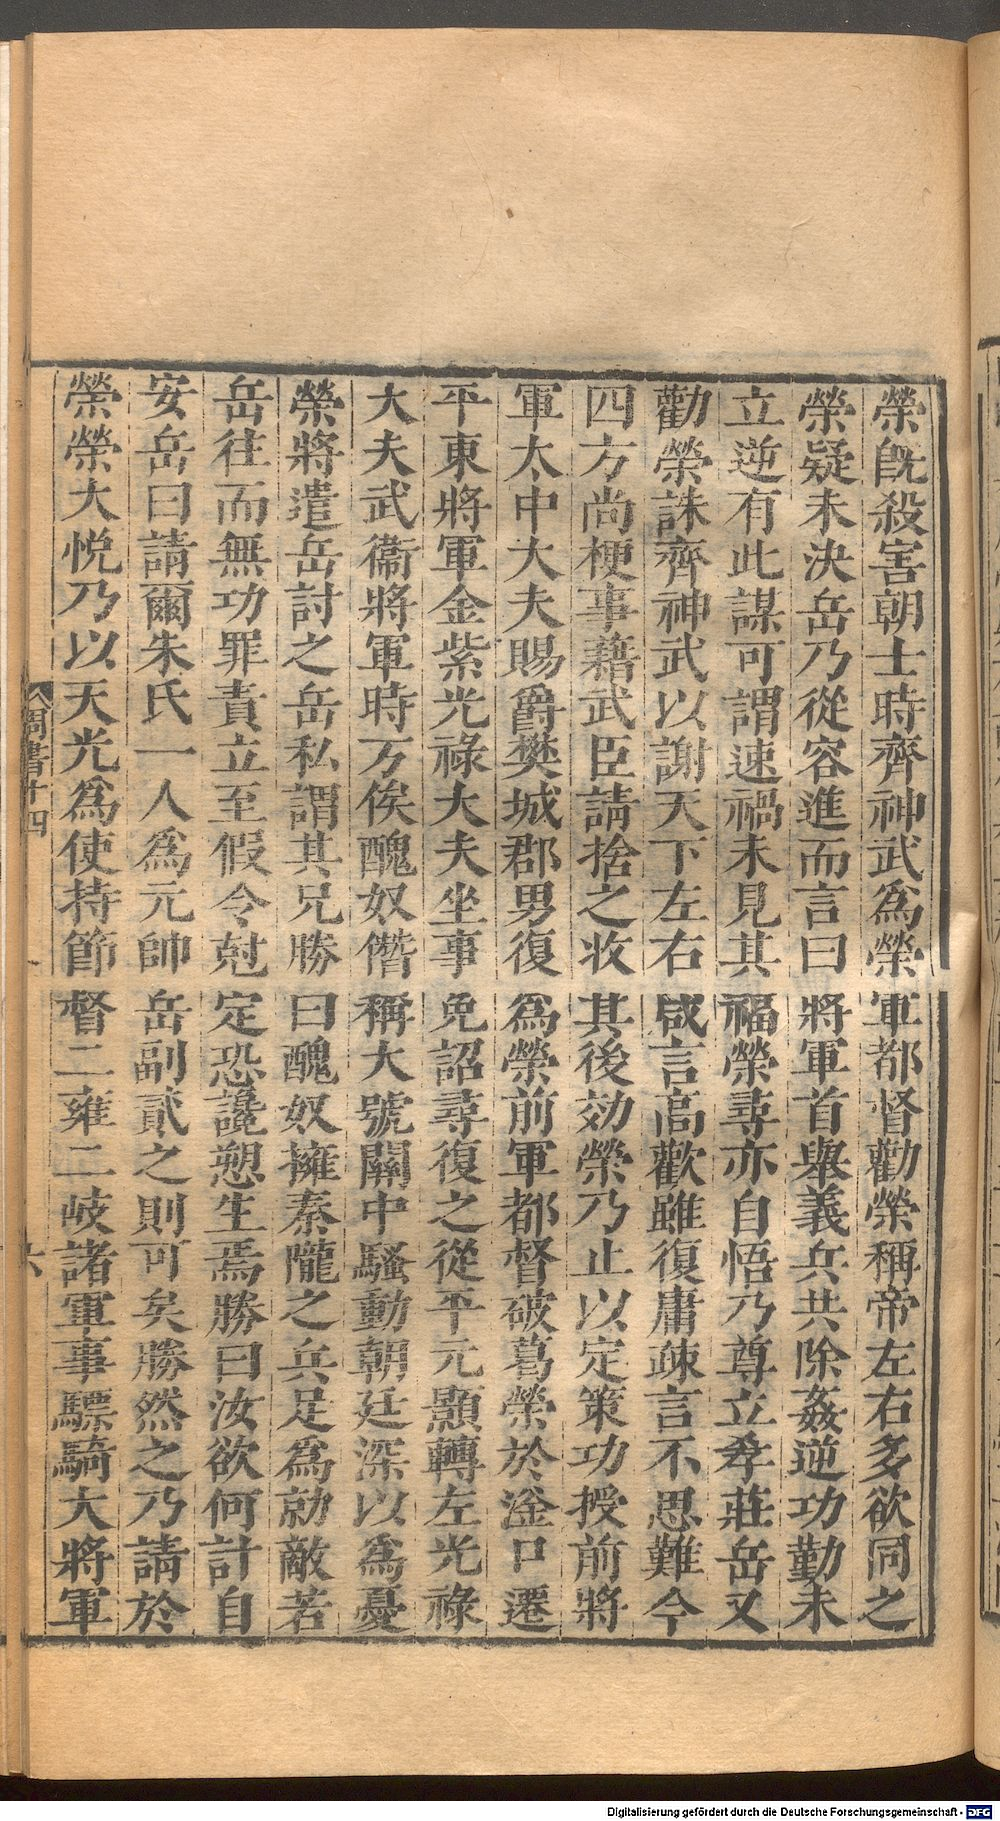 榮旣殺害朝士時齊神武爲榮軍都督勸榮稱帝左右多欲同之
榮疑未決岳乃從容進而言曰將軍首舉義兵共除姦逆功勤未
立逆有此謀可謂速禍未見其福榮尋亦自悟乃尊立孝莊岳又
勸榮誅齊神武以謝天下左右咸言高歡雖復庸疎言不思難今
四方尚梗事藉武臣請捨之收其後効榮乃止以定策功授前將
軍太中大夫賜爵樊城郡男復爲榮前軍都督破葛榮於滏口遷
平東將軍金紫光祿大夫坐事免詔尋復之從平元顥轉左光祿
大夫武衞將軍時万俟醜奴僭稱大號關中騷動朝廷深以爲憂
榮將遣岳討之岳私謂其兄勝曰醜奴擁秦隴之兵足爲勍敵若
岳往而無功罪責立至假令尅定恐讒愬生焉勝曰汝欲何計自
安岳曰請爾朱氏一人爲元帥岳副貳之則可矣勝然之乃請於
榮榮大悅乃以天光爲使持節督二雍二岐諸軍事驃騎大將軍
周書十四
六
Digitalisierung gefördert durch die Deutsche Forschungsgemeinschaft - DFG